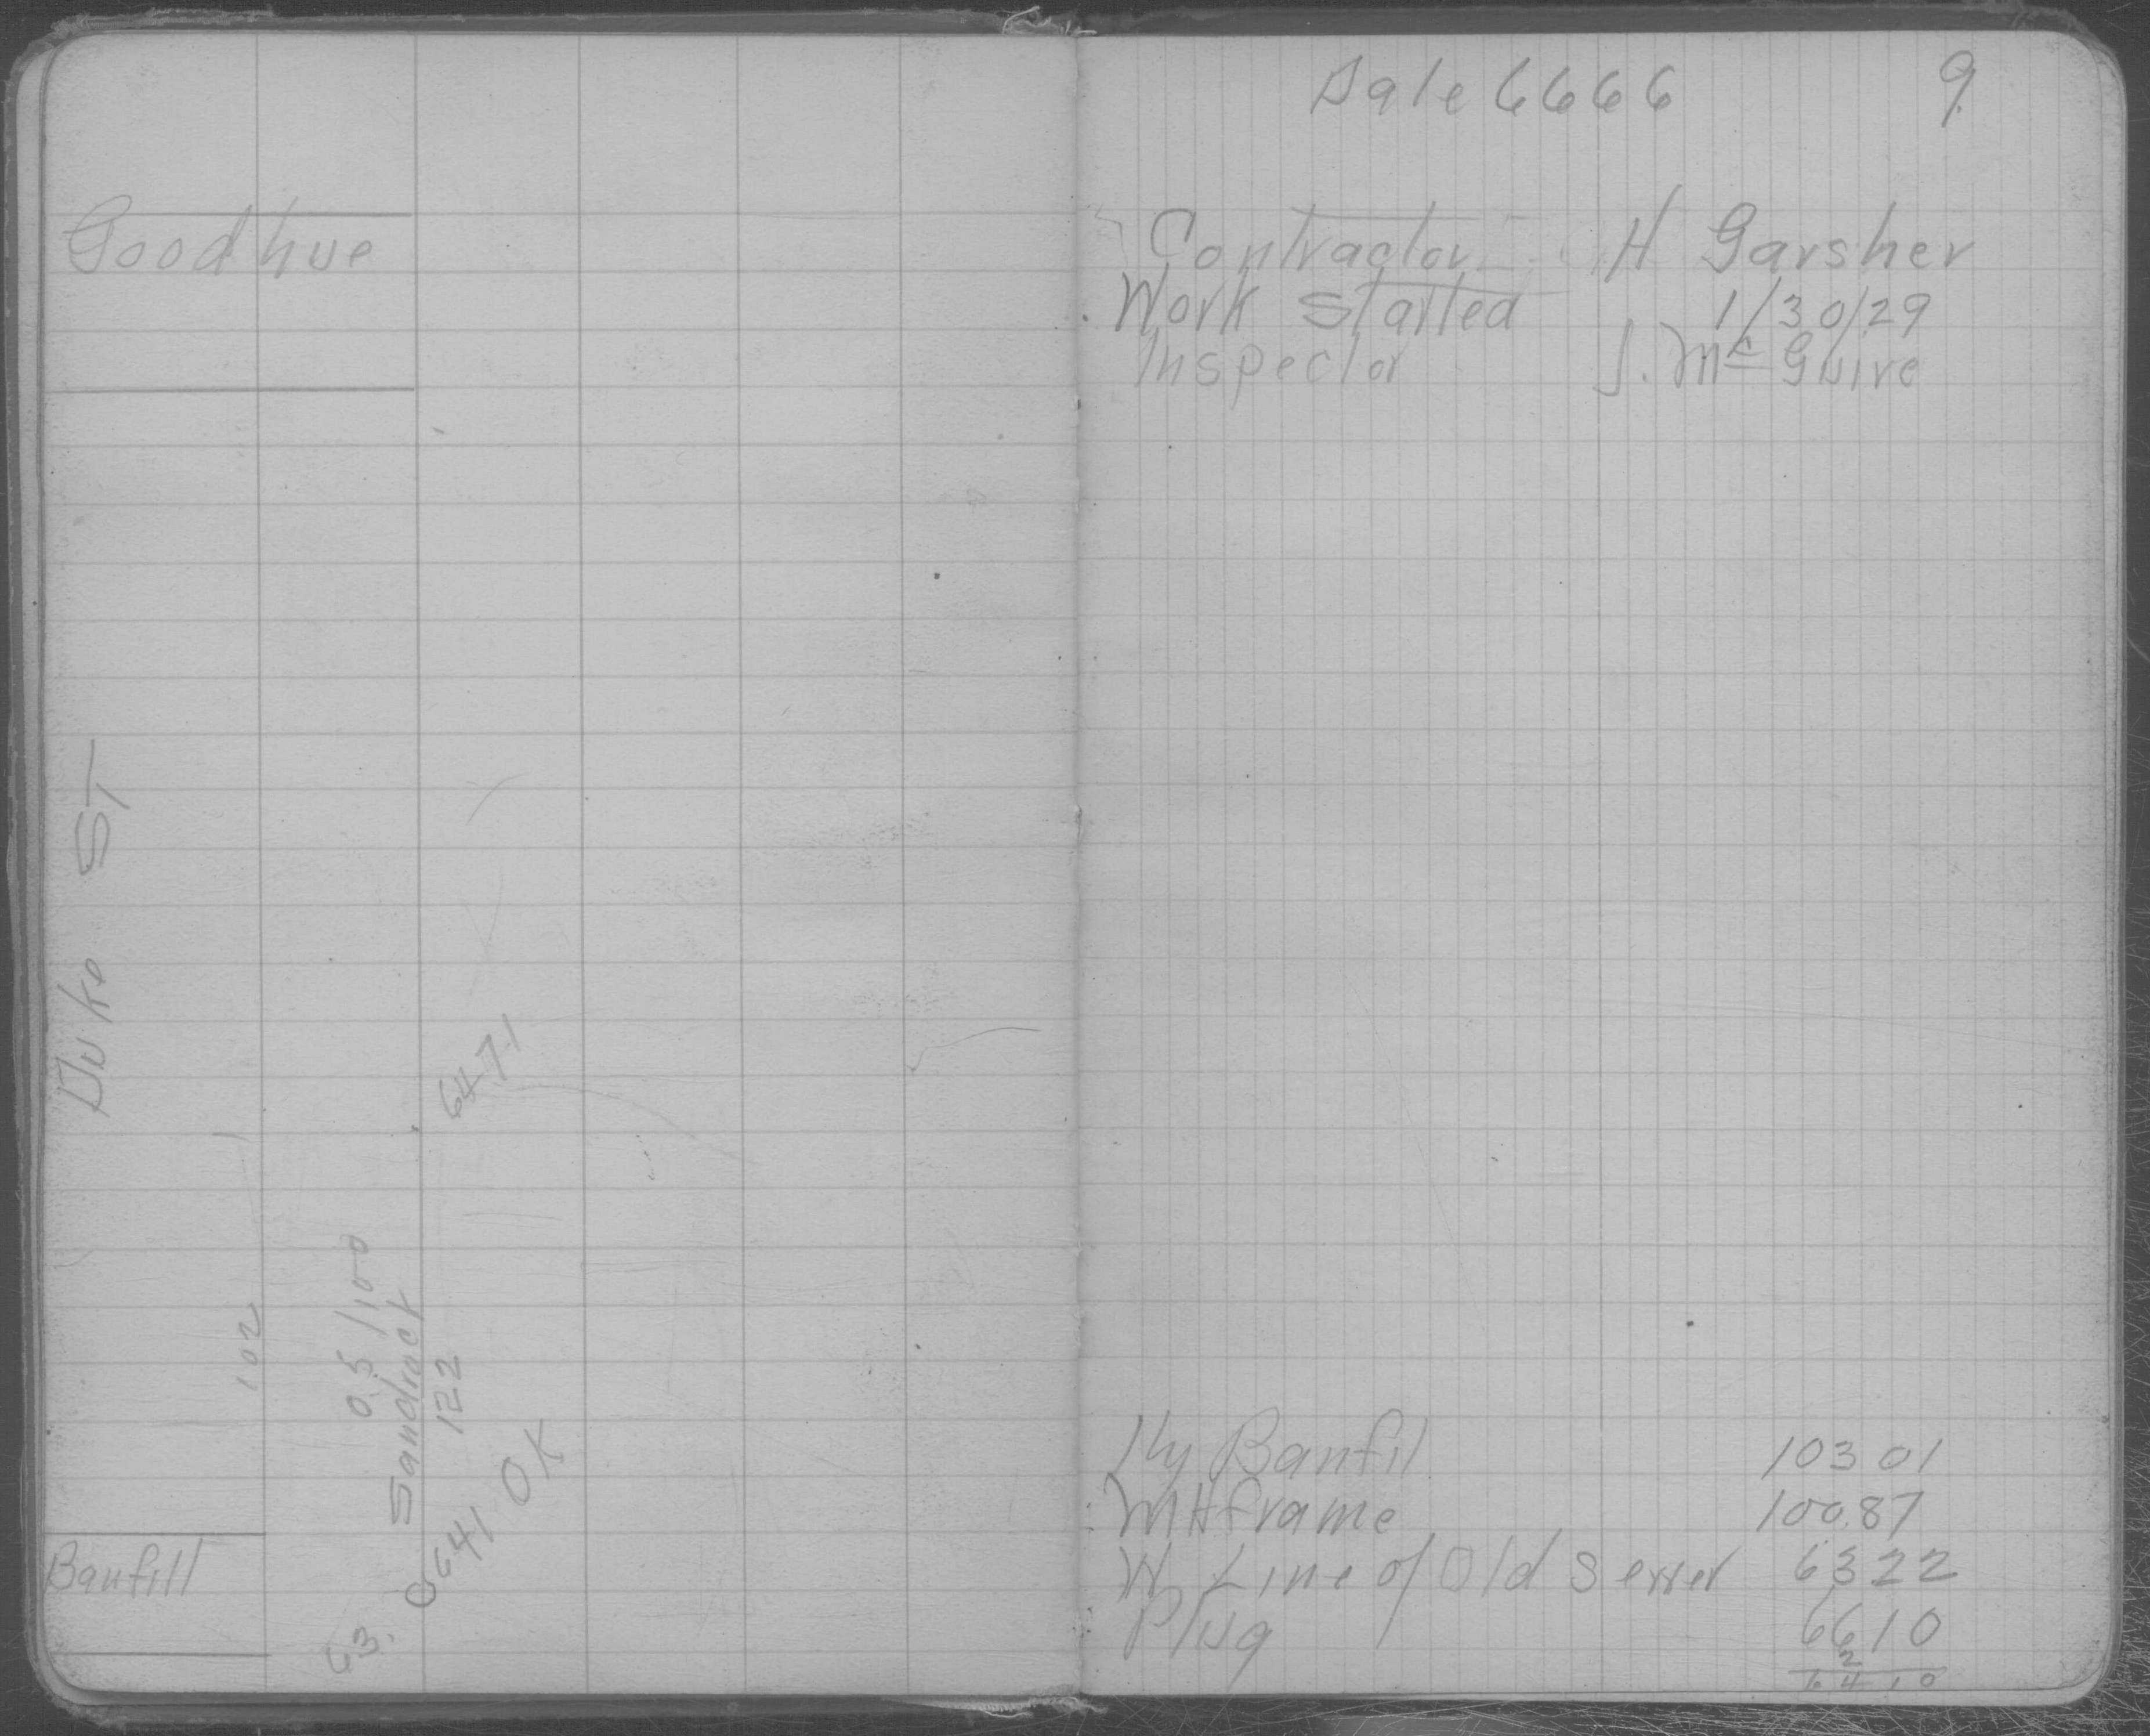 Goodhue
Duke ST
102
0.5/100
Sandrock
122
6471
641 OK
63.
Banfill
Sale 6666 9
Contractor H Garsher
Work Started 1/30/29
Inspector J. Mc Guire
Hy Banfil 103 01
MH frame 100.87
W Line of Old Sewer 63 22
Plug 66 10
2
64 10